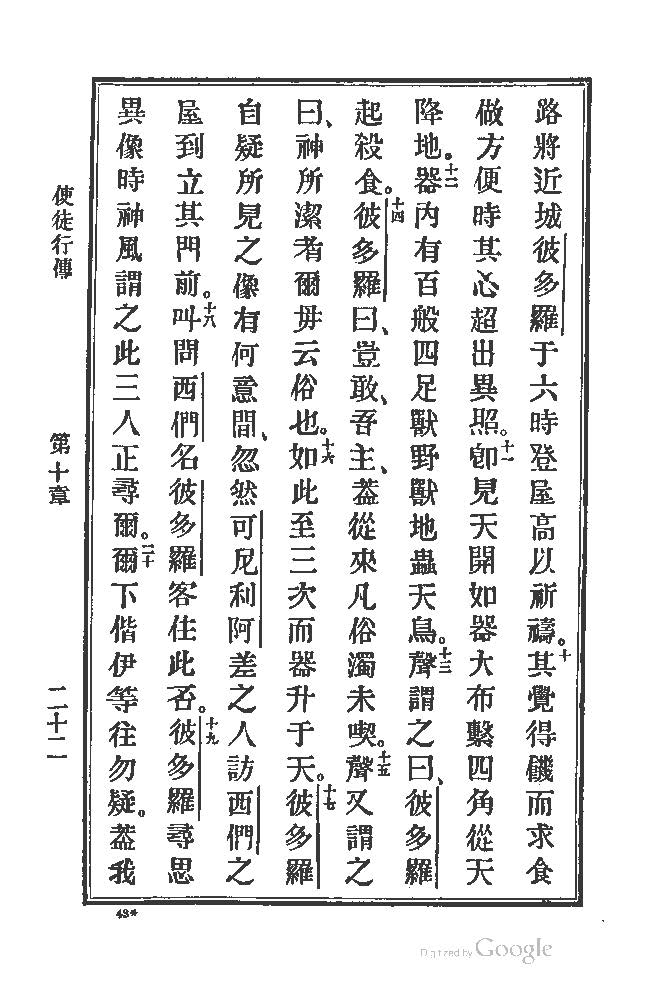 路將近城彼多羅于六時登屋高以祈禱。十其覺得饑而求食
做方便時其心超出異照。十一卽見天開如器大布繫四角從天
降地。十二器內有百般四足獸野獸地蟲天鳥。十三聲謂之曰、彼多羅
起殺食。十四彼多羅曰、豈敢、吾主、葢從來凡俗濁未喫。十五聲又謂之
曰、神所潔者爾毋云俗也。十六如此至三次而器升于天。十七彼多羅
自疑所見之像有何意間、忽然可尼利阿差之人訪西們之
屋到立其門前。十八叫問西們名彼多羅客住此否。十九彼多羅尋思
異像時神風謂之此三人正尋爾。二十爾下偕伊等往勿疑。葢我
使徒行傳
第十章
二十二
43*
Digitized by Google